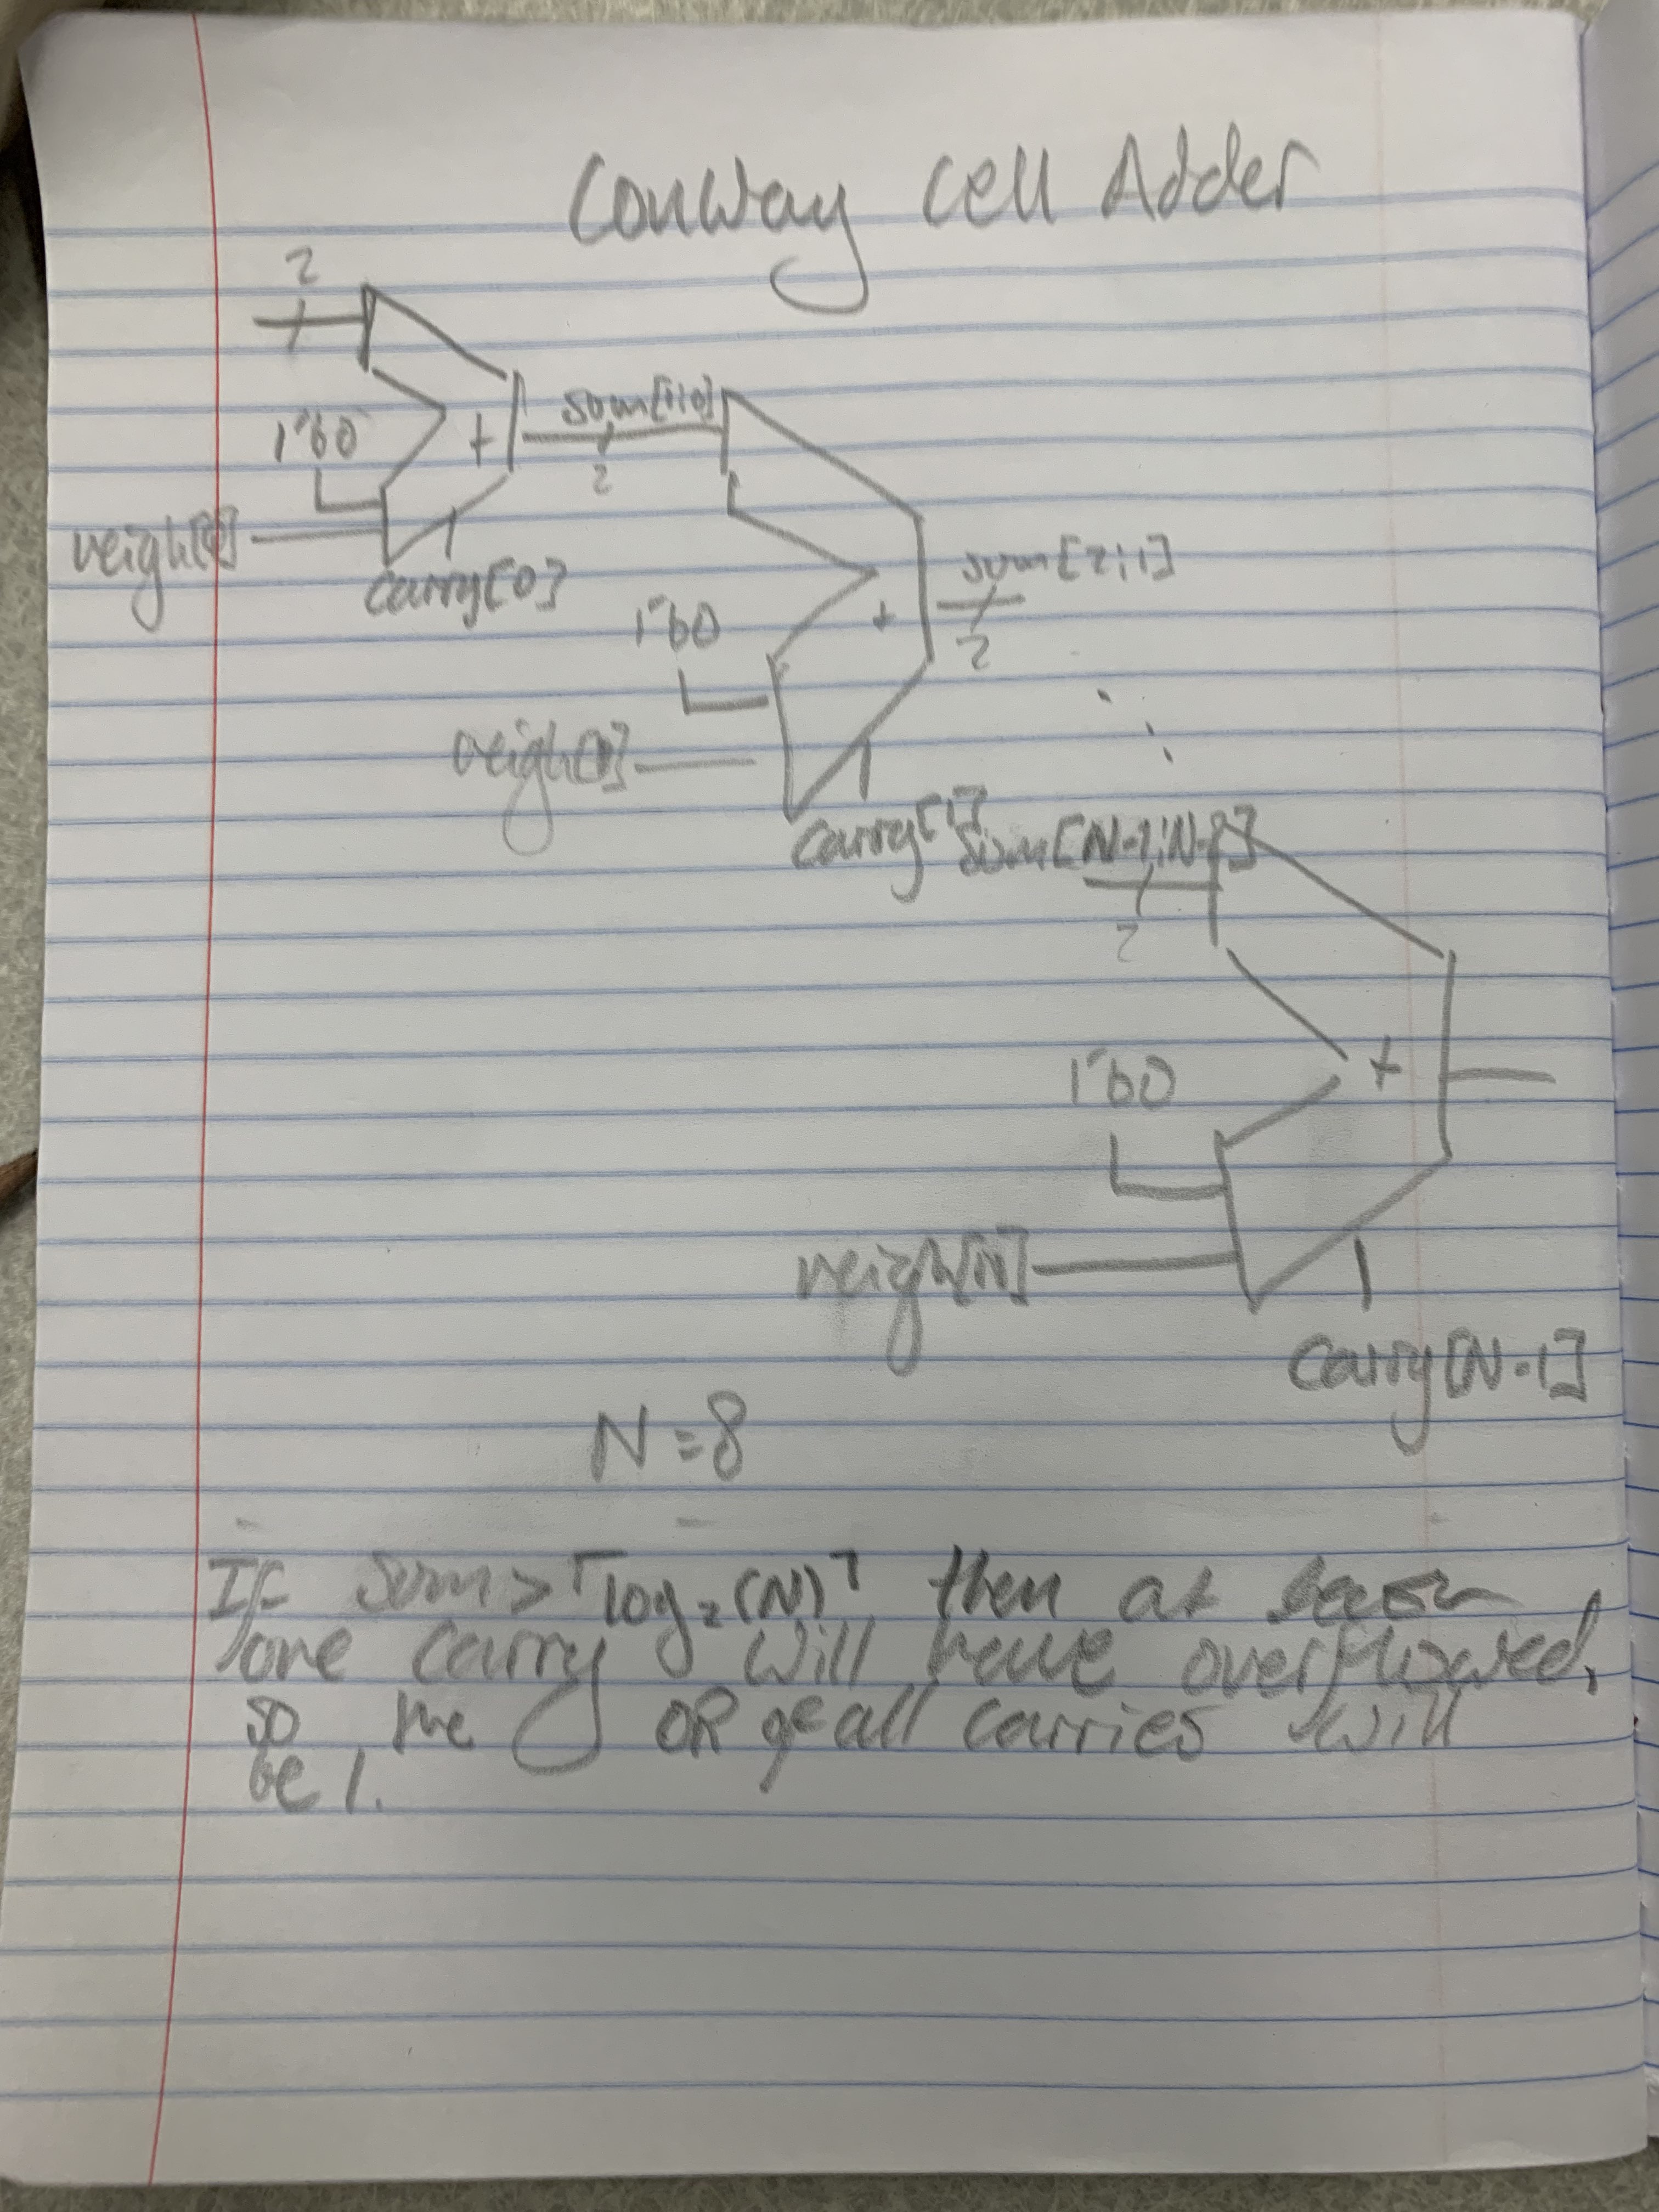 Conway Cell Adder
2
1'b0
+
sum[1:0]
2
neigh[0]
carry[0]
1'b0
+
sum[2:1]
2
neigh[1]
carry[1]
sum[N-1:N-2]
2
1'b0
+
neigh[N]
carry[N-1]
N=8
If sum>⌈log₂(N)⌉ then at
one carry will have overflowed,
so the OR of all carries will
be 1.